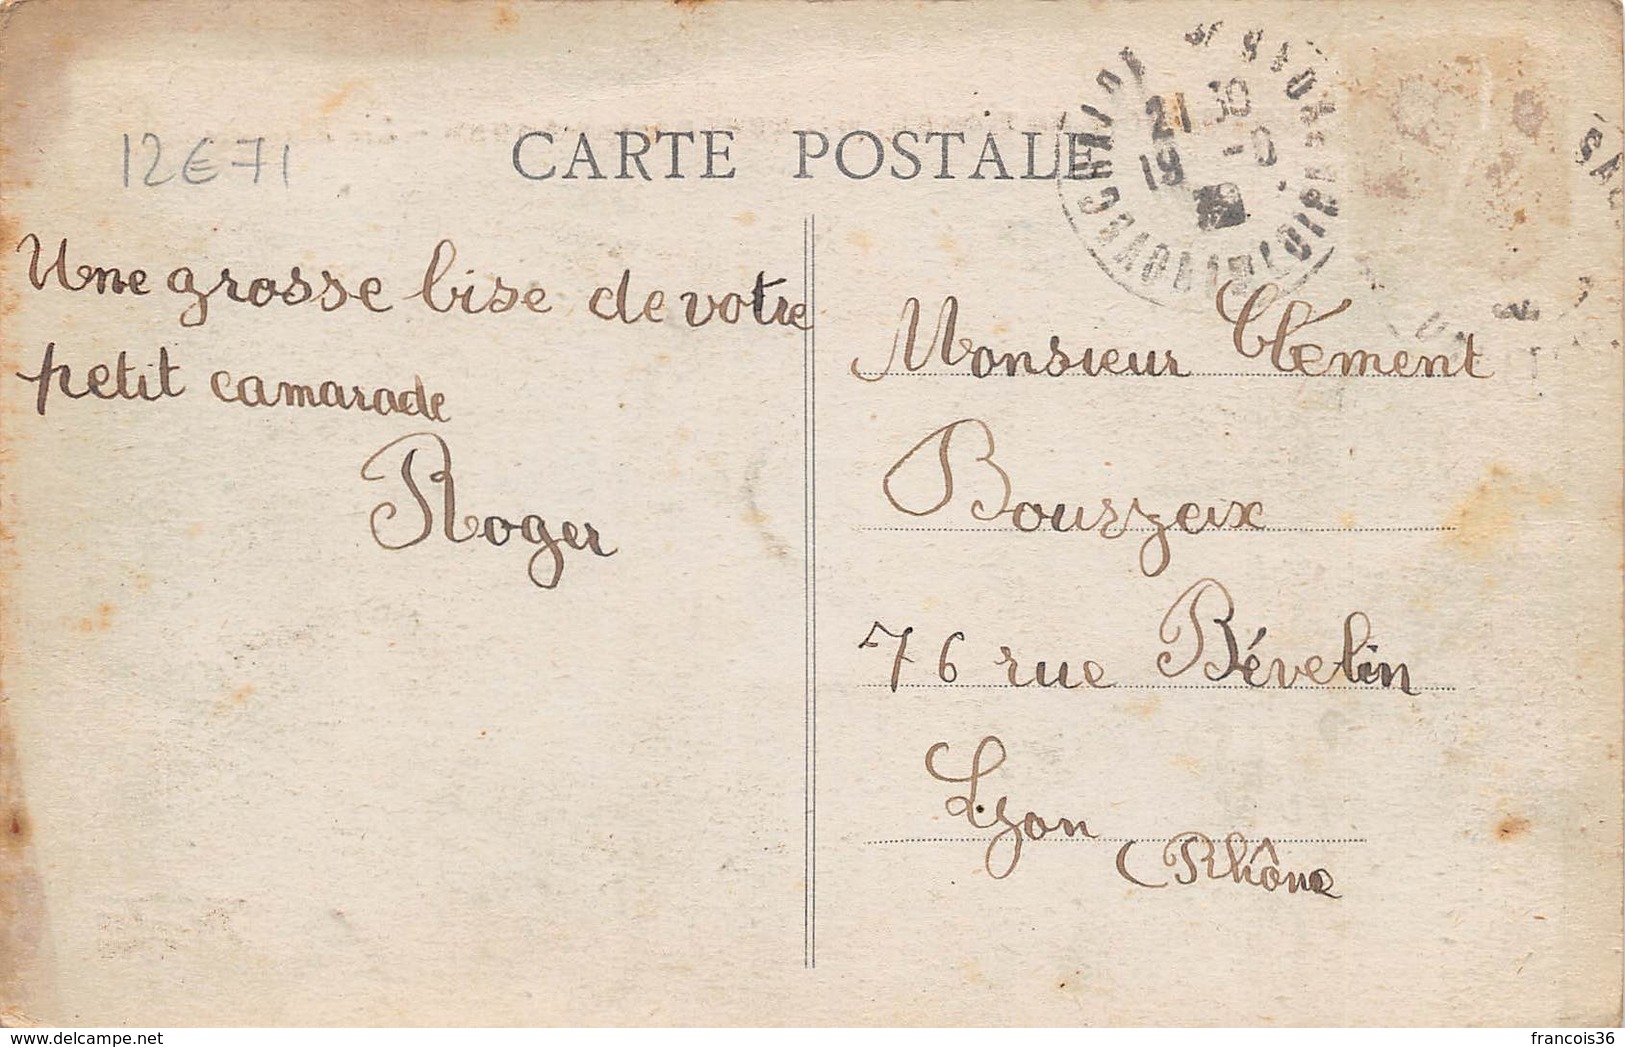 12€ 71
CARTE POSTALE
21 30
19
Une grosse bise de votre
petit camarade
Roger
Monsieur Clément
Bourzeix
76 rue Bévelin
Lyon
(Rhône
delcampe.net
francois36